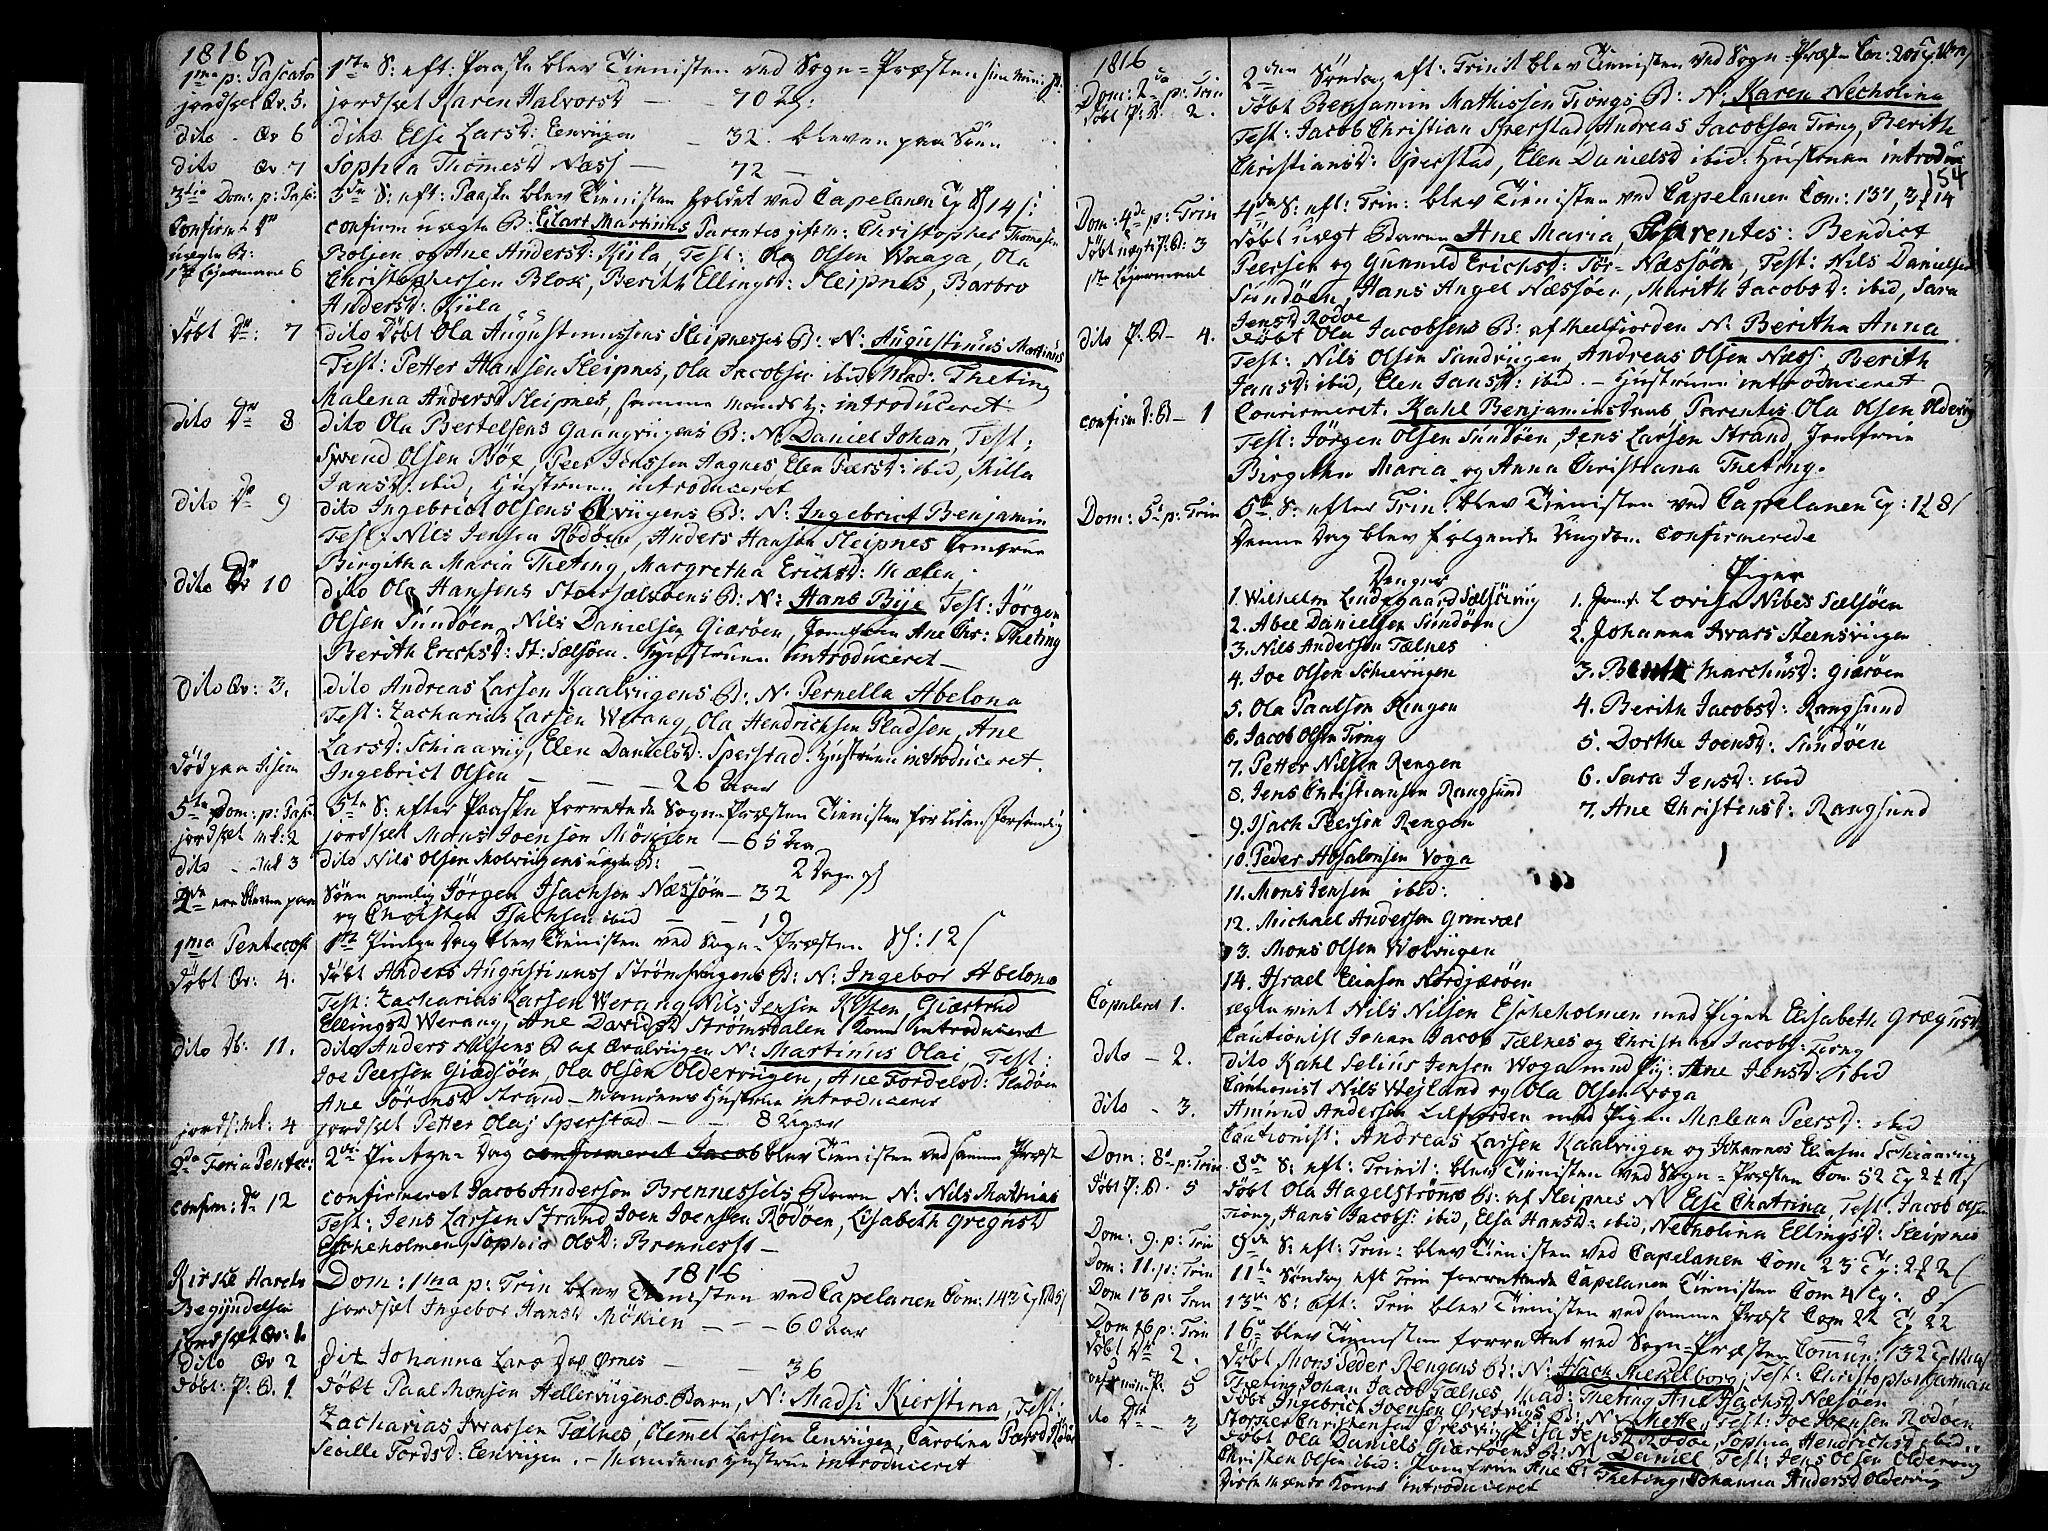 1816
1ma p: Pascatos
jordfæt Qv. 5.
dito - Qv 6
dito Qv 7
3tia Dom: p: Pasc:
Confirm Dr
uægte B:
1ste Lejermaal 6
døbt Dr: 7
dito Dr 8
dito Dr 9
dito Dr 10
dito Qv: 3.
5ta Dom: p: Pasc
jordfæt mk: 2
dito - mk 3
1ma Pentecost
døbt Qv: 4.
dito Db: 11.
jordf: mk: 4
2da Feria Pentec:
confirm: Dr 12
Kirske Aarets
Begyndelse
jordfæt Qv: 1
dito Qv 2
døbt: P: B. 1
1ste S: eft: Paaske blev Tienisten ved Sogn=Præsten
jordfæt Karen Halvorsd - - 70
dito Else Larsd: Eenviigen - 32. bleven paa Søen
Sophia Thomesd Næss - 72 -
3die S: eft: Paaske blev Tienisten holdet ved Capelanen
confirm uægte B: Eilart Martinus Parentes gift m: Christopher Thomesen
Boljen og Ane Andersd: Kiila, Test: Ola Olsen Waaga, Ola
Christophersen Blox, Berith Ellingsd: Sleipnes, Barbro
Andersd: Kiila
dito døbt Ola Augustinussens Sleipneses B: N: Augustinus Martinus
Test: Petter Hansen Sleipnes, Ola Jacobsen ibid Mad: Theting
Malena Andersd Sleipnes, samme Mands H: introduceret
dito Ola Bertelsens Gaangviigens B: N: Daniel Johan, Test:
Swend Olsen Bøe, Peer Jenssen Aagnes Elen Pærsd: ibid, Milla
Jansd: ibid, Hustruen introduceret
dito Ingebrict Olsens viigens B: N: Ingebrict Benjamin
Test. Nils Jensen Rødøen, Anders Hansen Sleipnes Jomfrue
Birgitha Maria Theting, Margretha Erichsd: Mælen
dito Ola Hansens Stoersælsøens B: N: Hans Bije Test: Jørgen
Olsen Sundøen, Nils Danielsen Gjærøen, Jomfrue Ane Chr: Theting
Berith Erichsd: St: Sælsøen. Hustruen introduceret -
dito Andreas Larsen Kaalviigens B: N: Pernella Abelona
Test: Zacharias Larsen Werang, Ola Hendrichsen Gladsøen, Ane
Larsd: Schiaavig, Elen Danielsd: Sperstad. Hustruen introduceret.
Ingebrict Olsen - - 26 Aar
5te S: efter Paaske forrettede Sogne Præsten Tienisten
jordfæt Mons Joensen Mökien - 65 Aar
dito Nils Olsen Molviigens uægte B: - 2 Dage
Søen nemlig Jørgen Isachsen Næssøen - 32
og Christen Isachsen ibid - - 19
1ste Pintze Dag blev Tienisten ved Sogn=Præsten 12
døbt Anders Augustinuss Strømsviigens B: N: Ingebor Abelona
Test: Zacharias Larsen Werang, Nils Jensen Kisten, Giærtrud
Ellingsd Werang, Ane Davidsd Strømsdalen Konen introduceret
dito Anders Nilsens B af Qvalviigen N: Martinus Olai, Test:
Joe Peersen Gladsøen, Ola Olsen Olderviigen, Ane Fordelsd: Sundøen
Ane Sørensd Strand - Mandens Hustrue introduceret
jordfæt Petter Olaj Sperstad - - 8 Uger
2den Pintze Dag confirmeret Jacob blev Tienisten ved samme Præst
confirmeret Jacob Andersen Brennessets Barn N: Nils Mathias
Test: Jens Larsen Strand Joen Joensen Rødøen, Lisabeth Gregusd
Escheholmen, Sophia Olsd: Brennesst -
1816
Dom: 1ma p: Trin blev Tienisten ved Capelanen Com: 143
jordfæt Ingebor Hansd Mökien - - 60 aar
Johanna Lars Ørnes - - 36
døbt Paal Monsen Hellerviigens Barn, N: Madsi Kierstina, Test:
Zacharias Iwarsen Tælnes, Olemel Larsen Eenviigen, Carolina
Seville Tordsd: Eenviigen. - Mandens Hustrue introduceret
1816
Dom: 2da p: Trin
døbt P: B. 2.
Dom: 4de p: Trin
døbt uægte P: B: 3
1ste Lejermaal
dito P: B - 4.
confirm D: B - 1
Dom: 5ta p: Trin
Copuleret 1.
dito - 2.
dito - 3.
Dom: 8de p: Trin
døbt P: B. 5
Dom: 9. p: Trin
Dom: 11. p: Trin
Dom 13 p: Trin
Dom 16 p: Trin
døbt Dr 2.
dito Dr - 3
154
2den Søndag eft: Trinit blev Tienisten ved Sogn=Præsten
døbt Benjamin Mathissen Tiongs B: N: Karen Necholina
Test: Jacob Christian Sperstad Andreas Jacobsen Tiong, Berith
Christiansd: Sperstad, Elen Danielsd ibid: Hustruen introdu
4de S: eft: Trin: blev Tienisten ved Capelanen Com: 137,
døbt uægt Barn Ane Maria, Parentes: Bendict
Peersen og Gunnild Erichsd: Sør-Næssøen, Test: Nils Danielsen
Sundøen, Hans Angel Næssøen, Marith Jacobsd: ibid, Sara
Jensd Rødøe
døbt Ola Jacobsens B: af Meelfiorden N: Beritha Anna
Test: Nils Olsen Sundviigen, Andreas Olsen Næss, Berith
Jansd: ibid, Elen Jansd: ibid. - Hustruen introduceret
Confirmeret. Kahl Benjamins Daab Parentes Ola Olsen Oldervig
Test: Jörgen Olsen Sundöen, Jens Larsen Strand, Jomfrue
Birgitha Maria og Anna Christiana Theting.
5te S: efter Trin: blev Tienisten ved Capelanen
Denne Dag blev følgende Ungdom confirmerede
Drenge
1. Wilhelm Lindegaard Sælsövig
2. Abel Danielsen Sundöen
3. Nils Andersen Tælnes
4. Joe Olsen Schieviigen
5. Ola Paalsøn Rengen
6. Jacob Olsen Tiong
7. Petter Nilsen Rengen
8. Jens Christiansen Rangsund
9. Isach Peersen Rengen
10. Peder Absalonsen Voga
11. Mons Jensen ibid:
12. Michael Andersen Grønvæl
13. Mons Olsen Wolviigen
14. Israel Eliæsen Nordjærøen
Piger
1. Jomf. Lovisa Nibes Sælsöen
2. Johanna Iwars Steensviigen
3. Bente Marchusd: Giæröen
4. Berith Jacobsd: Rangsund
5. Dorthe Joensd: Sundöen
6. Sara Jensd: ibid
7. Ane Christensd: Rangsund
Nils Nilsen Escheholmen med Pigen Elisabeth Grægusd
Cautionist Johan Jacob Tælnes og Christen Jacobs: Tiong
dito Kahl Selius Jensen Woga med Pig: Ane Jensd: ibid
Cautionist Nils Wejland og Ola Olsen Woga
Amund Andersen Lilfiorden med Pigen Malena Peersd: ibid
Cautionist: Andreas Larsen Kaalviigen og Johannes Eliæsen Schiaaviig
8de S: eft: Trinit: blev Tienisten ved Sogn=Præsten Com: 52
døbt Ola Hagelströms B: af Sleipnes N Else Chatrina, Test. Jacob Olsen
Tiong, Hans Jacobs: ibid, Elsa Hansd: ibid, Necholina Ellingsd: Sleipnes
9de S: eft: Trin: blev Tienisten ved Capelanen Com 23
11te Søndag eft Trin forrettede Capelanen Tienisten Com 4
13de S: eft: Trin blev Tienisten ved samme Præst Com 22
16de blev Tienisten forrettet ved Sogn=Præsten Commun: 132
døbt Mons Peder Rengens B: N: Isach Mekelborg, Test: Christopher Garman
Theting Johan Jacob Tælnes, Mad: Theting Ane Isachsd Næsöen
døbt Ingebrich Joensen Öresvigs B: N: Mette, Test: Joe Joensen Rödöen
Christensen Öresviig, Lisa Jensd Rödöe, Sophia Hendrichsd ibid
døbt Ola Daniels Giæröens B: N Daniel Test: Jens Olsen Oldervig
Christen Olsen ibid: Jomfrue Ane C: Theting, Johanna Andersd Oldervig
Konen introduceret